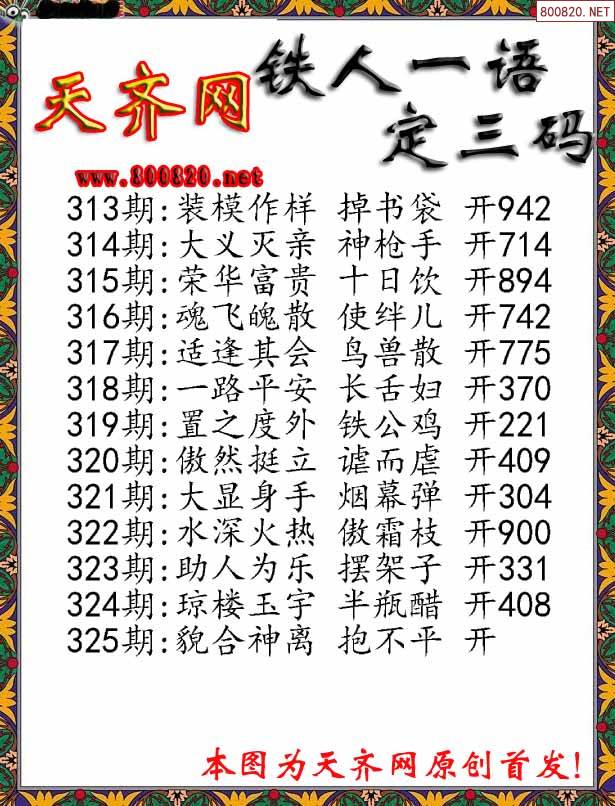 800820.NET
天齐网
铁人一语
定三码
www.800820.net
313期:装模作样 掉书袋 开942
314期:大义灭亲 神枪手 开714
315期:荣华富贵 十日饮 开894
316期:魂飞魄散 使绊儿 开742
317期:适逢其会 鸟兽散 开775
318期:一路平安 长舌妇 开370
319期:置之度外 铁公鸡 开221
320期:傲然挺立 谑而虐 开409
321期:大显身手 烟幕弹 开304
322期:水深火热 傲霜枝 开900
323期:助人为乐 摆架子 开331
324期:琼楼玉宇 半瓶醋 开408
325期:貌合神离 抱不平 开
本图为天齐网原创首发!